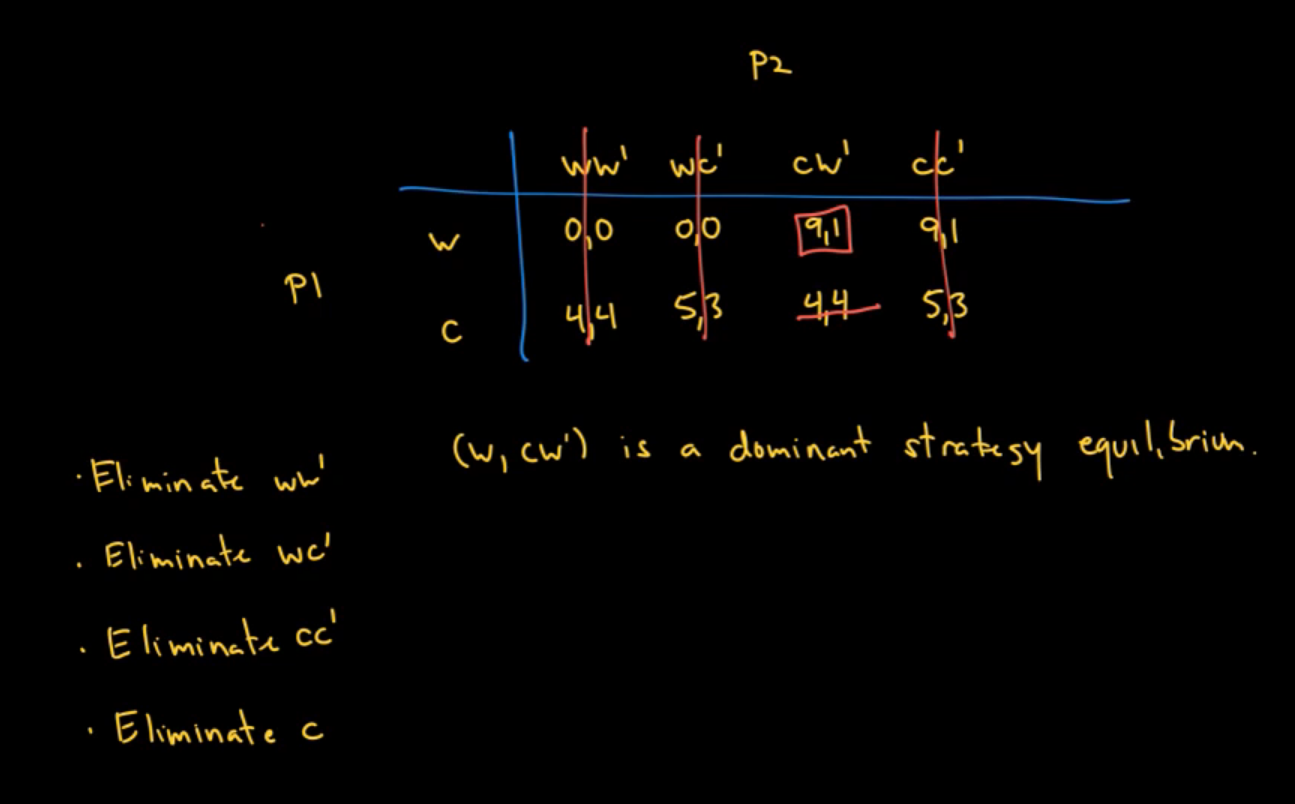 P2
ww' wc' cw' cc'
w 0,0 0,0 9,1 9,1
P1
c 4,4 5,3 4,4 5,3
(w, cw') is a dominant strategy equilibrium.
· Eliminate ww'
· Eliminate wc'
· Eliminate cc'
· Eliminate c